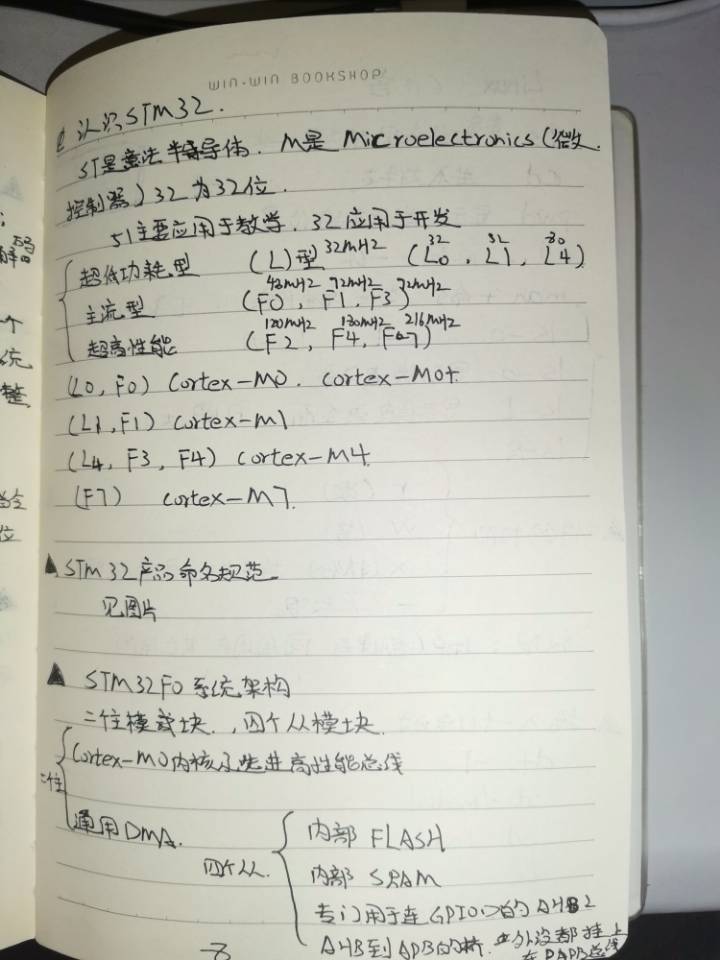 WIN-WIN BOOKSHOP
认识STM32.
ST是意法半导体. M是Microelectronics(微
控制器)32为32位.
51主要应用于教学. 32应用于开发
超低功耗型 (L)型 32MHz (L0, L1, L4) 32 32 80
主流型 (F0, F1, F3) 48MHz 72MHz 72MHz
超高性能 (F2, F4, F7) 120MHz 180MHz 216MHz
(L0, F0) Cortex-M0. Cortex-M0+.
(L1, F1) Cortex-M1
(L4, F3, F4) Cortex-M4.
(F7) Cortex-M7.
▲STM32产品命名规范.
见图片
▲ STM32F0系统架构
二住模块., 四个从模块.
二住 Cortex-M0内核 先进高性能总线
通用DMA.
四个从. 内部 FLASH
内部 SRAM
专门用于连GPIO口的AHB2
AHB到APB的桥. 外设都挂上
在 APB总线
个
统
整
位